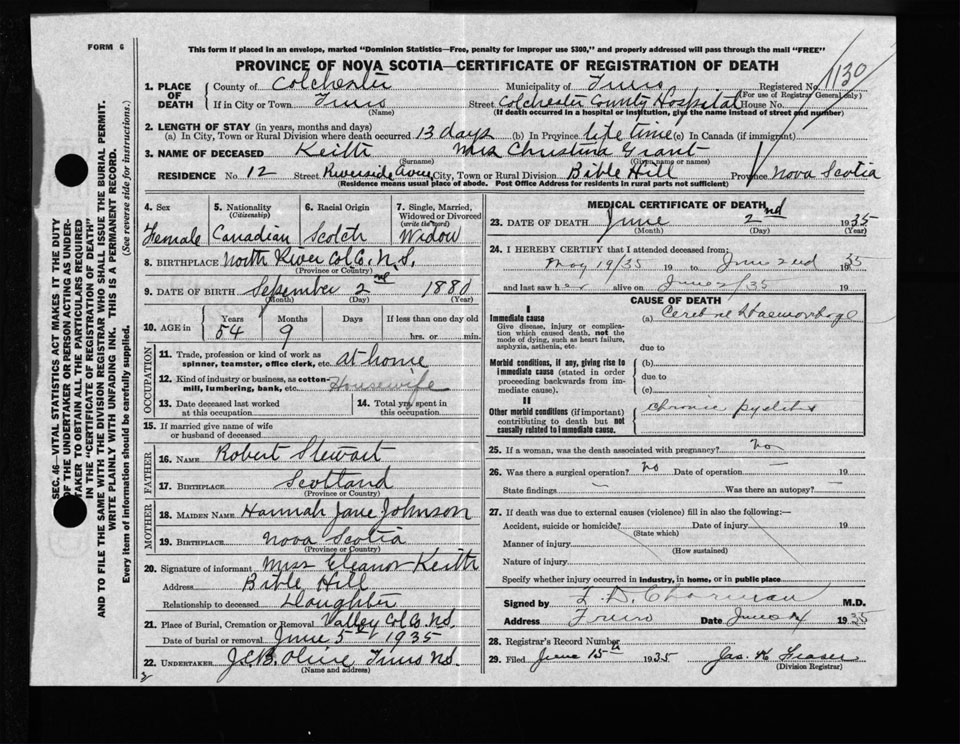 FORM 6
This form if placed in an envelope, marked "Dominion Statistics—Free, penalty for improper use $300," and properly addressed will pass through the mail "FREE"
PROVINCE OF NOVA SCOTIA—CERTIFICATE OF REGISTRATION OF DEATH
1. PLACE OF DEATH County of Colchester Municipality of Truro Registered No. 1130
(For use of Registrar General only)
If in City or Town Truro Street Colchester County Hospital House No.
(Name) (If death occurred in a hospital or institution, give the name instead of street and number)
2. LENGTH OF STAY (in years, months and days)
(a) In City, Town or Rural Division where death occurred 13 days (b) In Province life time (c) In Canada (if immigrant)
3. NAME OF DECEASED Keith Mrs Christina Grant
(Surname) (Given name or names)
RESIDENCE No. 12 Street Riverside Ave City, Town or Rural Division Bible Hill Province Nova Scotia
(Residence means usual place of abode. Post Office Address for residents in rural parts not sufficient)
4. Sex 5. Nationality (Citizenship) 6. Racial Origin 7. Single, Married, Widowed or Divorced (write the word)
Female Canadian Scotch Widow
8. BIRTHPLACE North River Col Co. N.S.
(Province or Country)
9. DATE OF BIRTH September 2nd 1880
(Month) (Day) (Year)
10. AGE in Years Months Days If less than one day old
54 9 hrs. or min.
OCCUPATION
11. Trade, profession or kind of work as spinner, teamster, office clerk, etc. at home
12. Kind of industry or business, as cotton mill, lumbering, bank, etc. Housewife
13. Date deceased last worked at this occupation 14. Total yrs. spent in this occupation
15. If married give name of wife or husband of deceased
FATHER
16. NAME Robert Stewart
17. BIRTHPLACE Scotland
(Province or Country)
MOTHER
18. MAIDEN NAME Hannah Jane Johnson
19. BIRTHPLACE Nova Scotia
(Province or Country)
20. Signature of informant Miss Eleanor Keith
Address Bible Hill
Relationship to deceased Daughter
21. Place of Burial, Cremation or Removal Valley Col Co. N.S.
Date of burial or removal June 5th 1935
22. UNDERTAKER J.C.B. Olive Truro N.S.
(Name and address)
MEDICAL CERTIFICATE OF DEATH
23. DATE OF DEATH June 2nd 1935
(Month) (Day) (Year)
24. I HEREBY CERTIFY that I attended deceased from:
May 19/35 19 to June 2nd 1935
and last saw her alive on June 2/35 19
CAUSE OF DEATH
I
Immediate cause (a) Cerebral Haemorrhage
Give disease, injury or complication which caused death, not the mode of dying, such as heart failure, asphyxia, asthenia, etc.
due to
Morbid conditions, if any, giving rise to immediate cause (stated in order proceeding backwards from immediate cause).
(b)
due to
(c)
II
Other morbid conditions (if important) contributing to death but not causally related to immediate cause.
Chronic pyelitis
25. If a woman, was the death associated with pregnancy? No
26. Was there a surgical operation? No Date of operation — 19
State findings — Was there an autopsy? —
27. If death was due to external causes (violence) fill in also the following:—
Accident, suicide or homicide? Date of injury 19
(State which)
Manner of injury
(How sustained)
Nature of injury
Specify whether injury occurred in industry, in home, or in public place
Signed by M.D.
Address Truro Date June 4 1935
28. Registrar's Record Number
29. Filed June 15th 1935 Jas. K Fraser
(Division Registrar)
SEC. 46—VITAL STATISTICS ACT MAKES IT THE DUTY
OF THE UNDERTAKER OR PERSON ACTING AS UNDER-
TAKER TO OBTAIN ALL THE PARTICULARS REQUIRED
IN THE "CERTIFICATE OF REGISTRATION OF DEATH"
AND TO FILE THE SAME WITH THE DIVISION REGISTRAR WHO SHALL ISSUE THE BURIAL PERMIT.
WRITE PLAINLY WITH UNFADING INK. THIS IS A PERMANENT RECORD.
Every item of information should be carefully supplied. (See reverse side for instructions.)